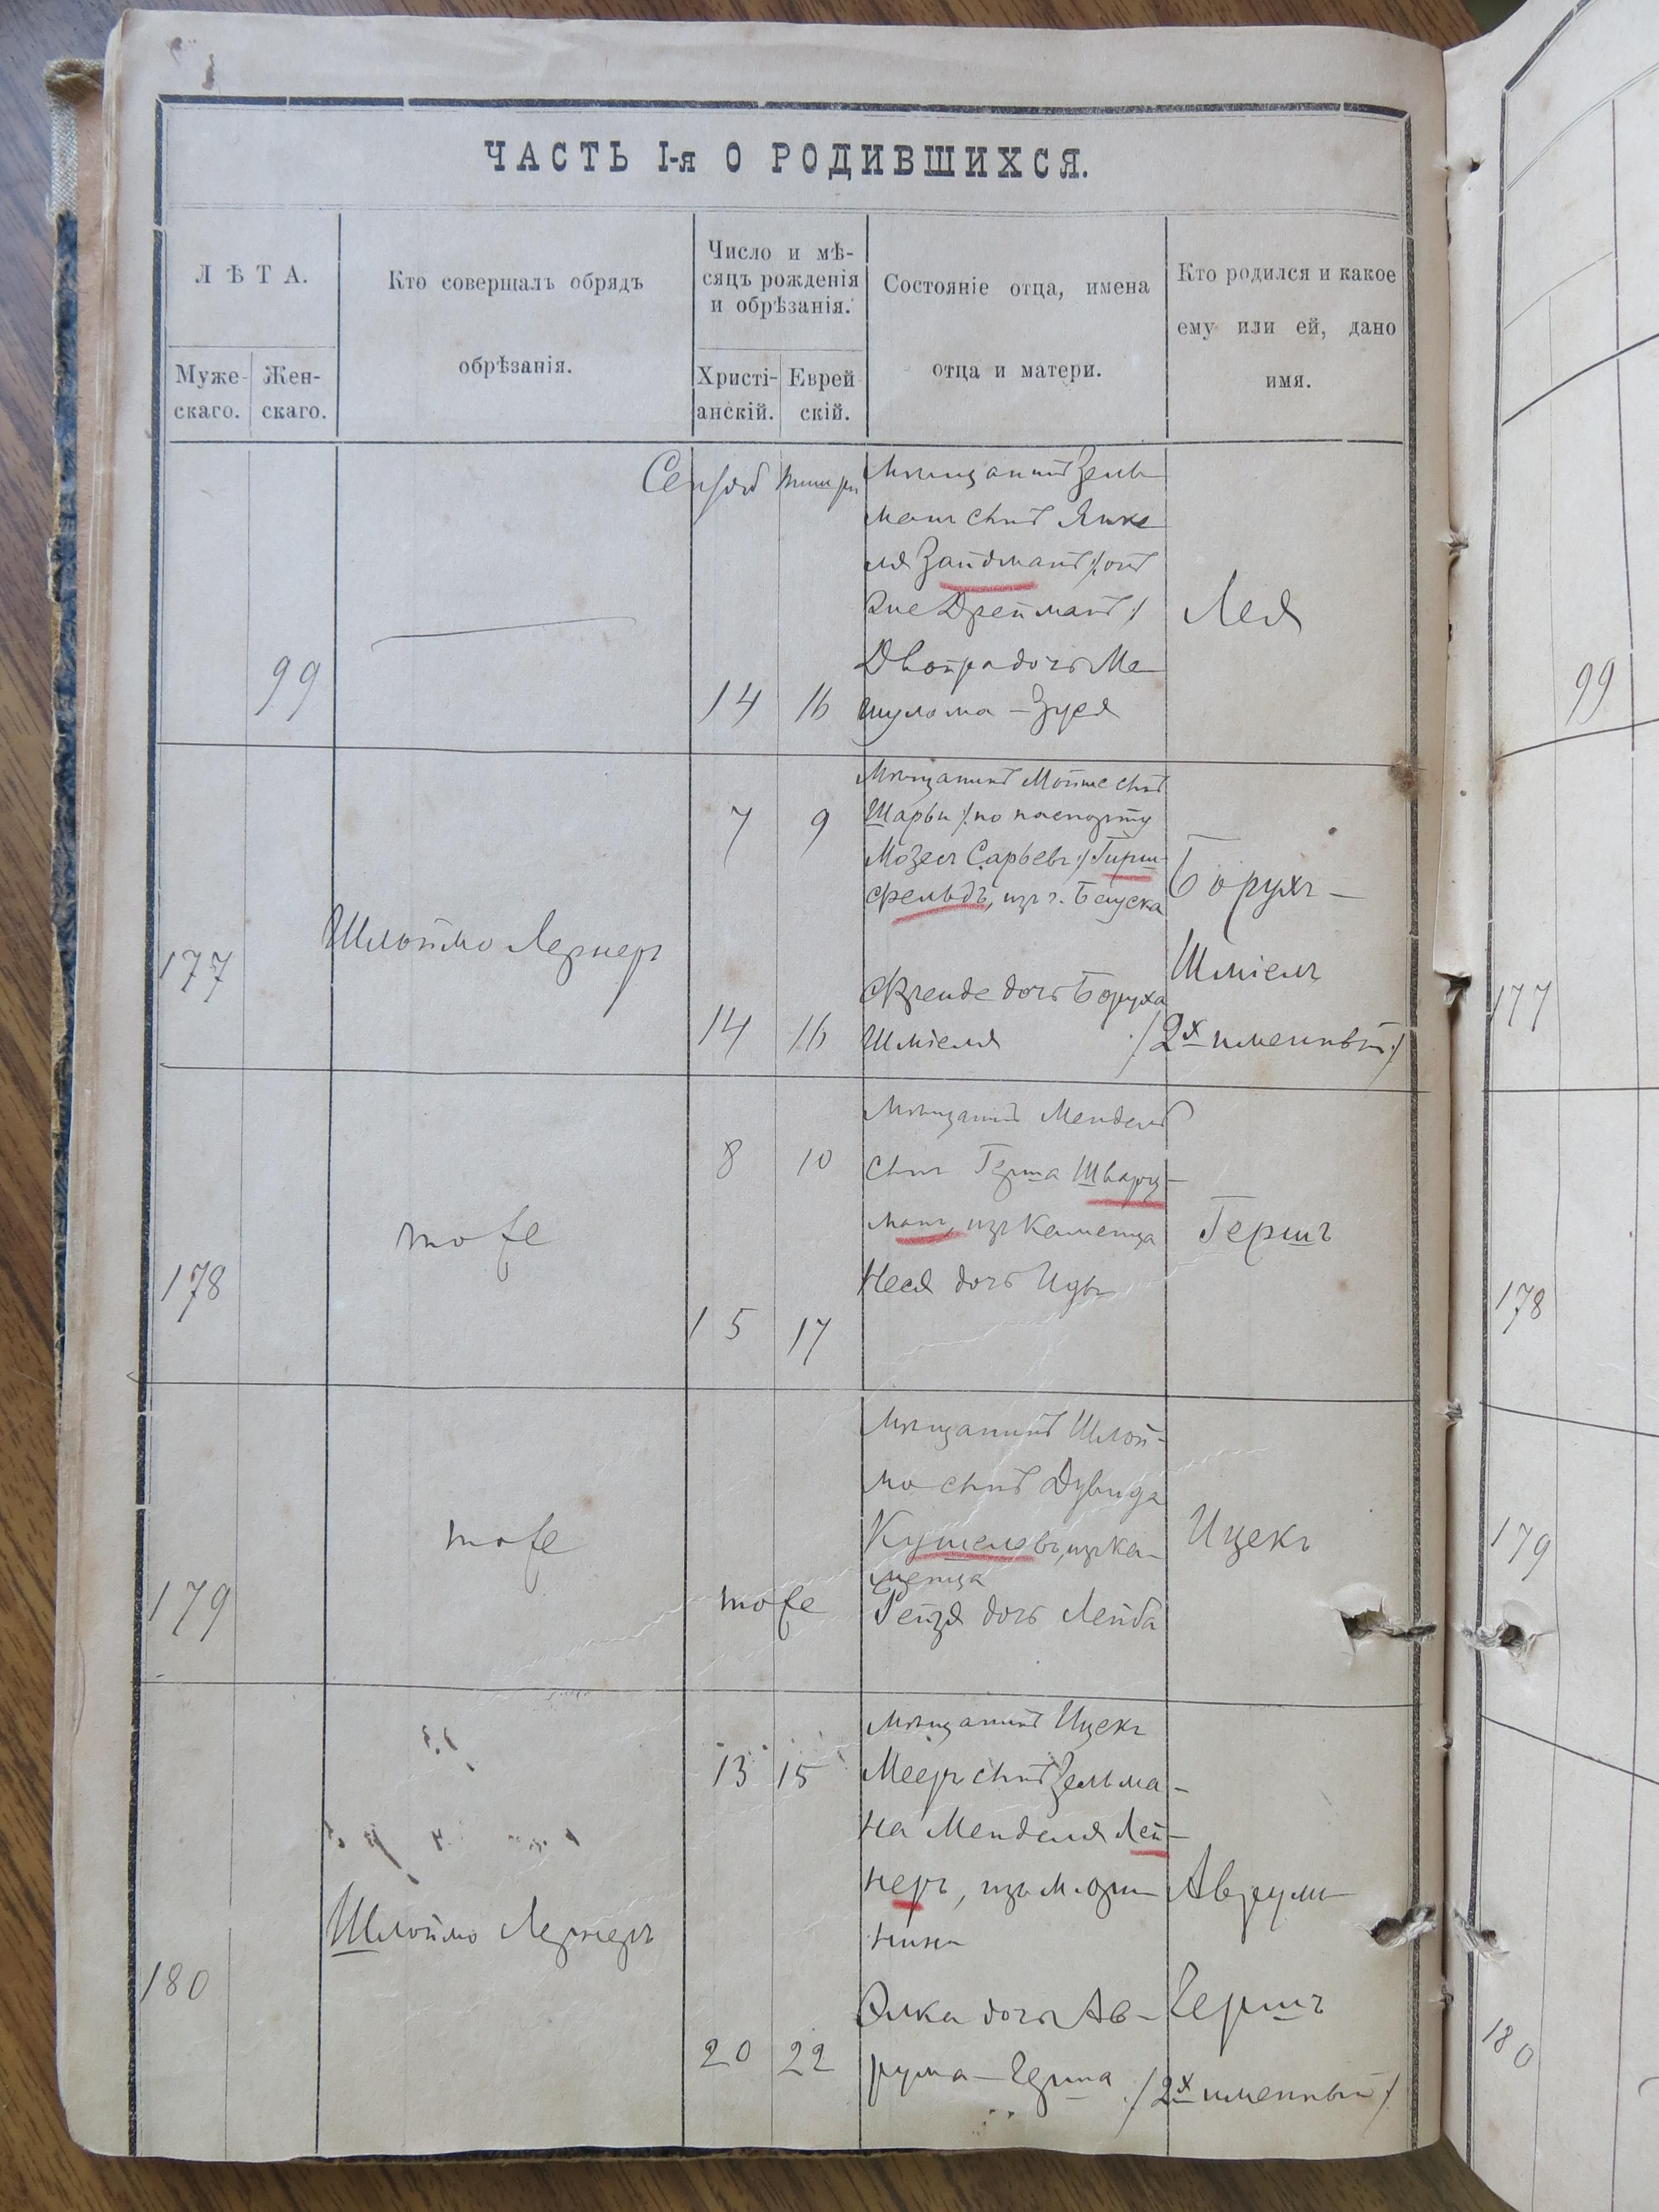 ЧАСТЬ I-я О РОДИВШИХСЯ.
ЛѢТА.
Муже-
скаго.
Жен-
скаго.
Кто совершалъ обрядъ
обрѣзанія.
Число и мѣ-
сяцъ рожденія
и обрѣзанія.
Христі-
анскій.
Еврей
скій.
Состояніе отца, имена
отца и матери.
Кто родился и какое
ему или ей, дано
имя.
99
14 16
Мѣщанинъ Зель
манъ сынъ Янке
ля Зайдманъ /:онъ
же Дрейманъ:/
Двойра дочь Ме
шулома-Зуся
Лея
99
177
Шлоймо Лернеръ
7 9
14 16
Мѣщанинъ Мойше сынъ
Шарьи /:по паспорту
Мозесъ Сарьевъ:/ Гирш-
фельдъ, изъ г. Бауска
дочь Боруха
Шміеля
Борухъ-
Шміель
/:2х именный:/
177
178
тоже
8 10
15 17
Мѣщанинъ Мендель
сынъ Герша Шварц-
манъ, изъ Каменца
Неся дочь
Гершъ
178
179
тоже
тоже
Мѣщанинъ Шлой-
мо сынъ Дувида
изъ Ка-
менца
Рейзя дочь Лейба
Ицекъ
179
180
Шлоймо Лернеръ
13 15
20 22
Мѣщанинъ Ицекъ
Мееръ сынъ Зельма-
на Менделя Лей-
неръ, изъ м. Ози-
Элка дочь Ав-
рума-Герша
Аврумъ
Гершъ
/:2х именный:/
180